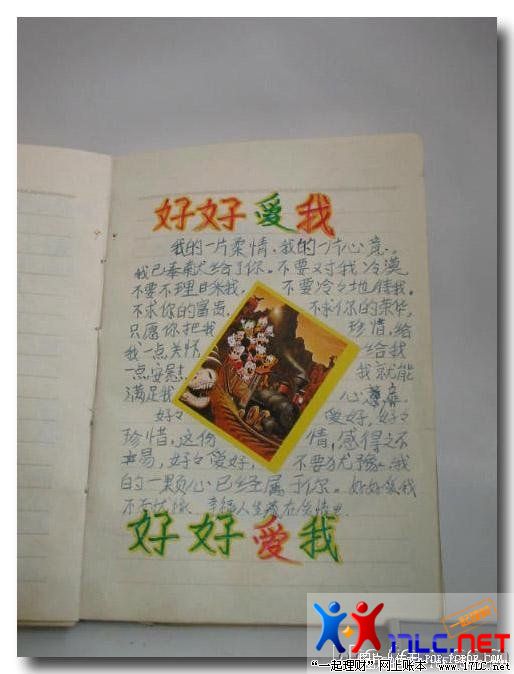 好好爱我
我的一片柔情、我的一片心意。
我已奉献给了你。不要对我冷漠
不要不理日米我, 不要冷冷地
不求你的富贵, 不求你的荣华,
只愿你把我 珍惜,给
我一点关怀 给我
一点安慰 我就能
满足我 心意
好々 爱好,好々
珍惜,这份 情,感得之不
易,好々爱好, 不要犹豫、我
的一颗心已经属于你。好好爱我
不 幸福人生
好好爱我
17LC.NET
“一起理财”网上账本 www.17LC.net